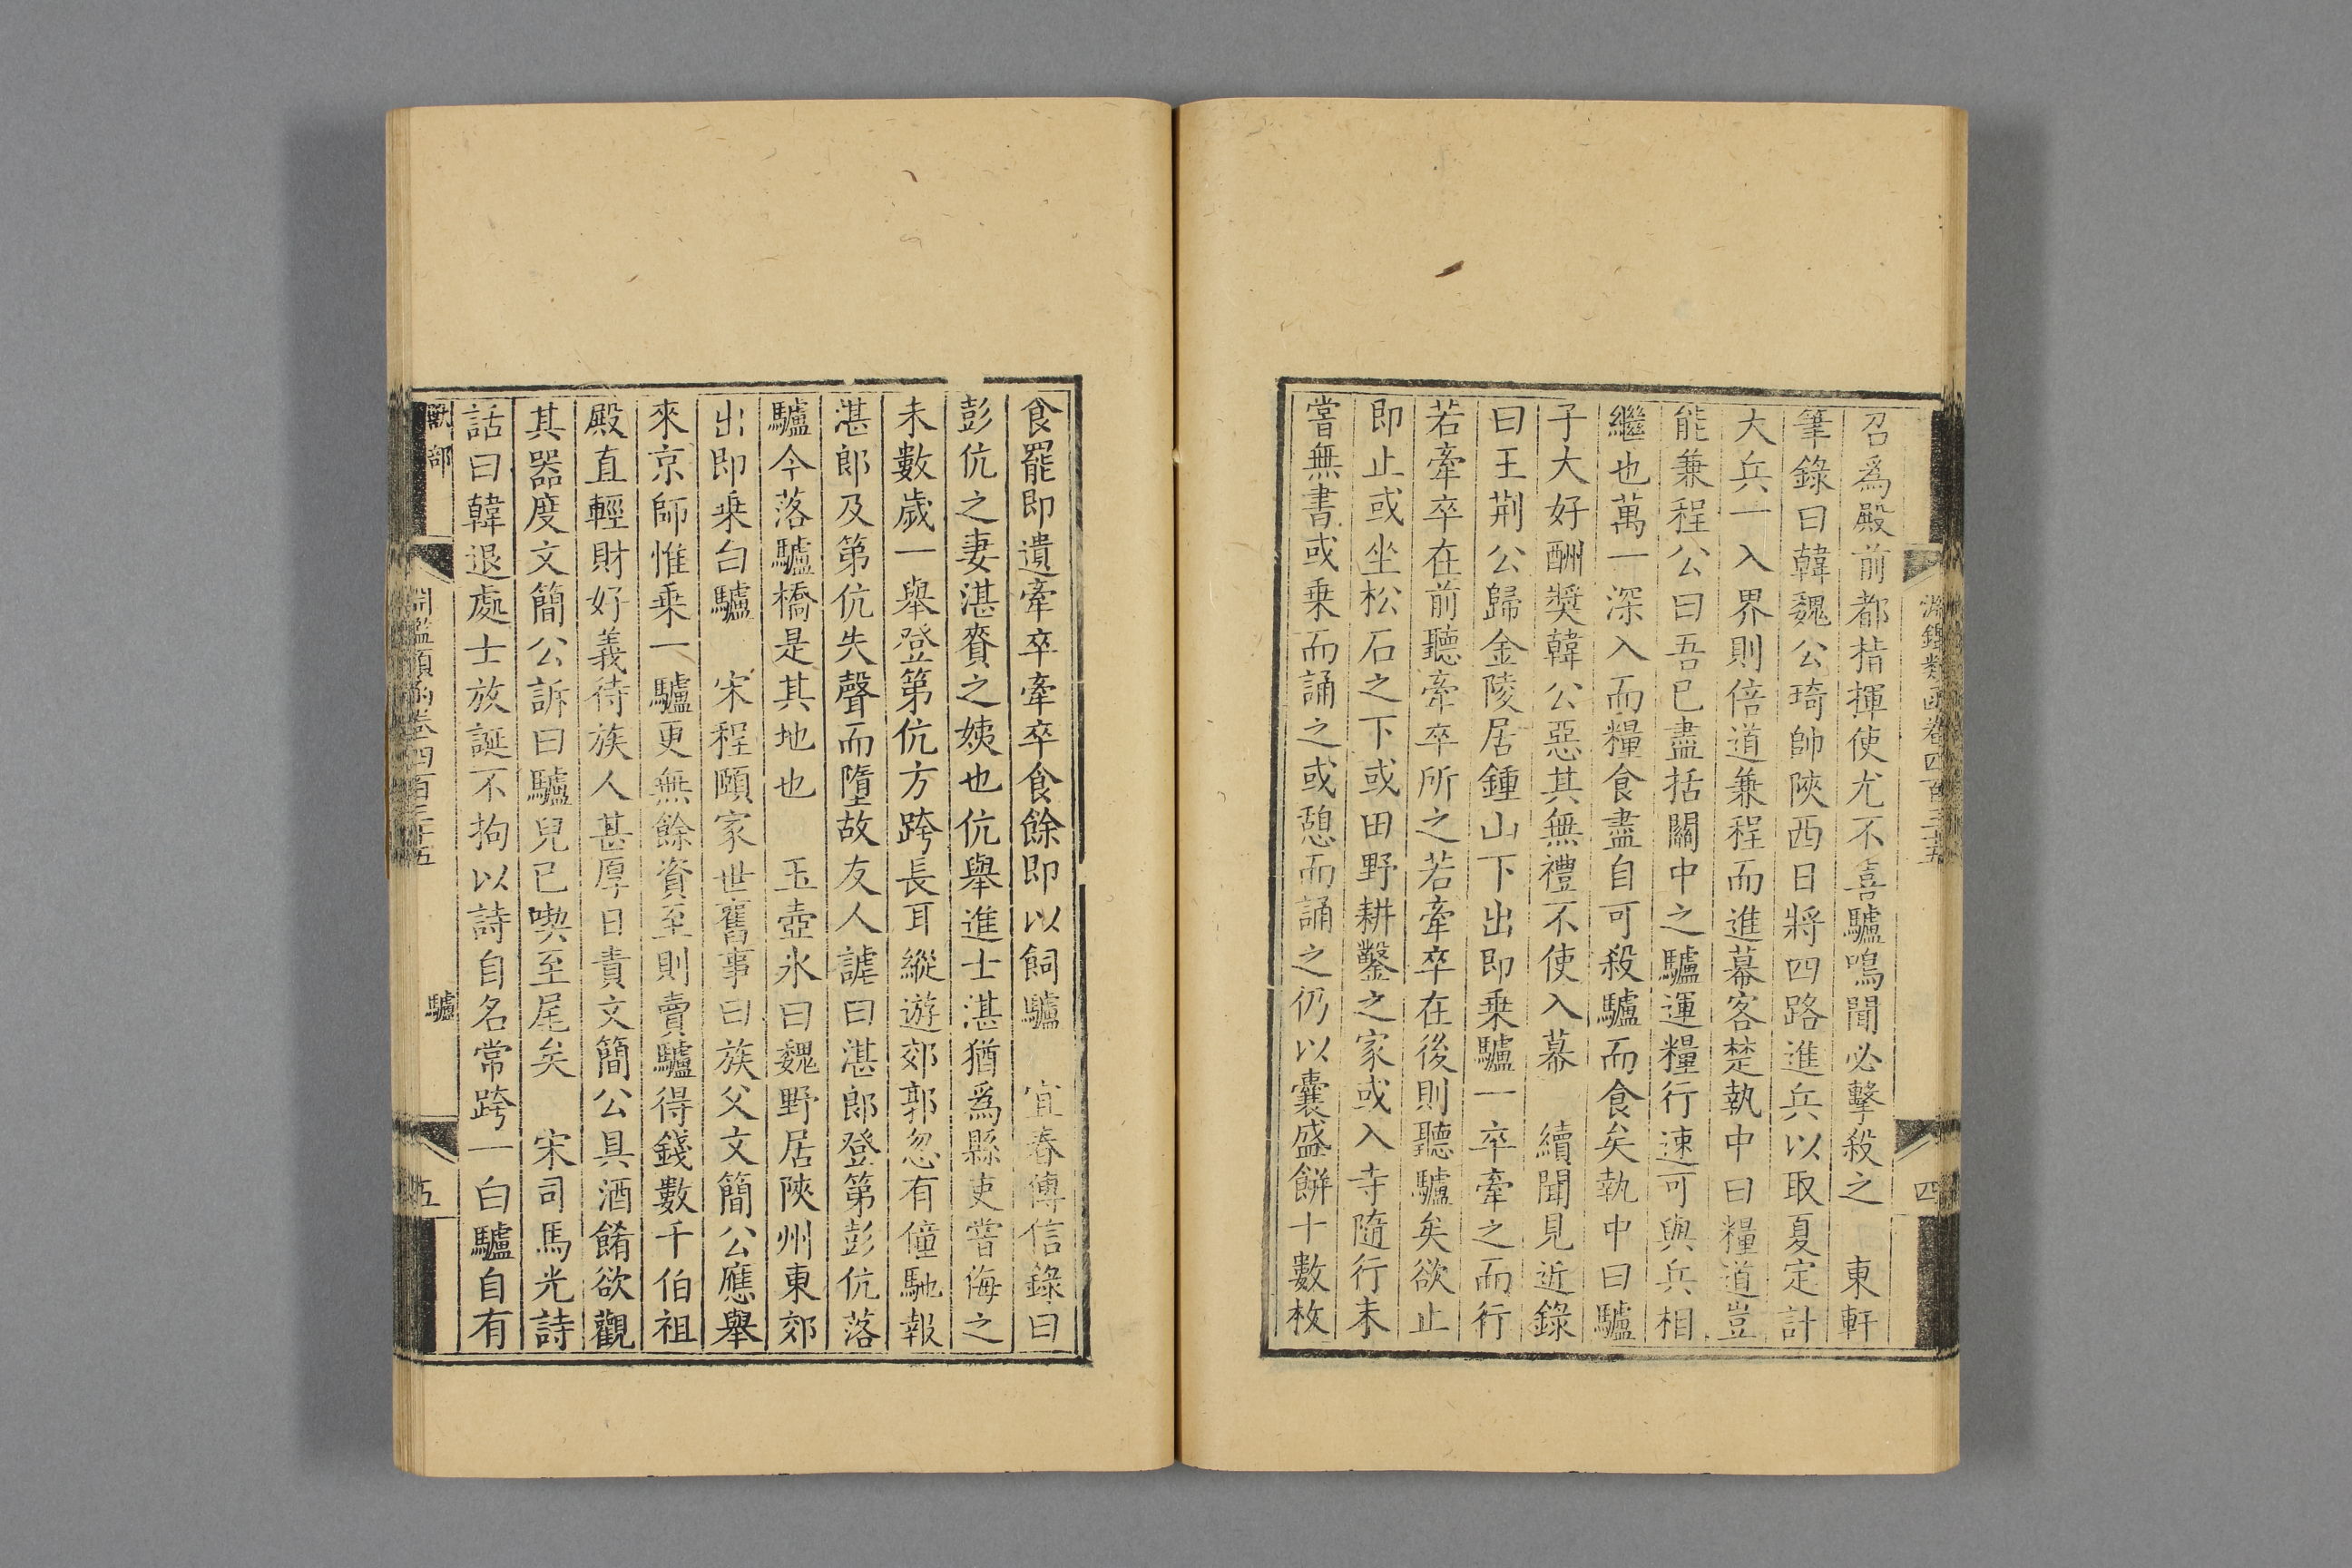 召為殿前都指揮使尤不喜驢鳴聞必擊殺之　東軒
筆錄曰韓魏公琦帥陝西日將四路進兵以取夏定計
大兵一入界則倍道兼程而進幕客楚執中曰糧道豈
能兼程公曰吾已盡括關中之驢運糧行速可與兵相
繼也萬一深入而糧食盡自可殺驢而食矣執中曰驢
子大好酬奬韓公惡其無禮不使入幕　續聞見近錄
曰王荆公歸金陵居鍾山下出即乗驢一卒牽之而行
若牽卒在前聽牽卒所之若牽卒在後則聽驢矣欲止
即止或坐松石之下或田野耕鑿之家或入寺隨行未
嘗無書或乗而誦之或憩而誦之仍以囊盛餅十數枚
食罷即遺牽卒牽卒食餘即以飼驢　宜春傳信錄曰
彭伉之妻湛賁之姨也伉舉進士湛猶為縣吏嘗侮之
未數歲一舉登第伉方跨長耳縱遊郊郭忽有僮馳報
湛郎及第伉失聲而墮故友人謔曰湛郎登第彭伉落
驢今落驢橋是其地也　玉壺氷曰魏野居陝州東郊
出即乗白驢　宋程頤家世舊事曰族父文簡公應舉
來京師惟乗一驢更無餘資至則賣驢得錢數千伯祖
殿直輕財好義待族人甚厚日責文簡公具酒餚欲觀
其器度文簡公訴曰驢兒已喫至尾矣　宋司馬光詩
話曰韓退處士放誕不拘以詩自名常跨一白驢自有
獸部
淵鑑類函卷四百三十五
驢
五